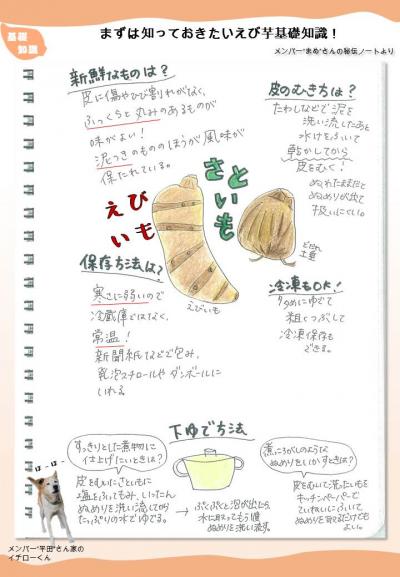 基礎
知識
まずは知っておきたいえび芋基礎知識！
メンバー”まめ”さんの秘伝ノートより
新鮮なものは？
皮に傷やひび割れがなく、
ふっくらと丸みのあるものが
味がよい！
泥つきのもののほうが風味が
保たれている。
皮のむき方は？
たわしなどで泥を
洗い流したあと
水けをふいて
乾かしてから
皮をむく！
ぬれたままだと
ぬめりが出て
扱いにくい。
えび
いも
さと
いも
えびいも
どだれ
土垂
保存方法は？
寒さに弱いので
冷蔵庫ではなく、
常温！
新聞紙などで包み、
発泡スチロールやダンボールに
いれる。
冷凍もOK！
かためにゆでて
粗くつぶして
冷凍保存も
できる。
下ゆで方法
すっきりとした煮物に
仕上げたいときは？
皮をむいたさといもに
塩をふってもみ、いったん
ぬめりを洗い流してから
たっぷりの水でゆでる。
→ ぶくぶくと泡が出たら、
水に取ってもう1度
ぬめりを洗い流す。
煮ころがしのような
ぬめりをいかすときは？
皮をむいて洗ったいもを
キッチンペーパーで
ていねいにふいて
ぬめりを取るだけでも
よい。
はっはっ
メンバー”平田”さん家の
イチローくん